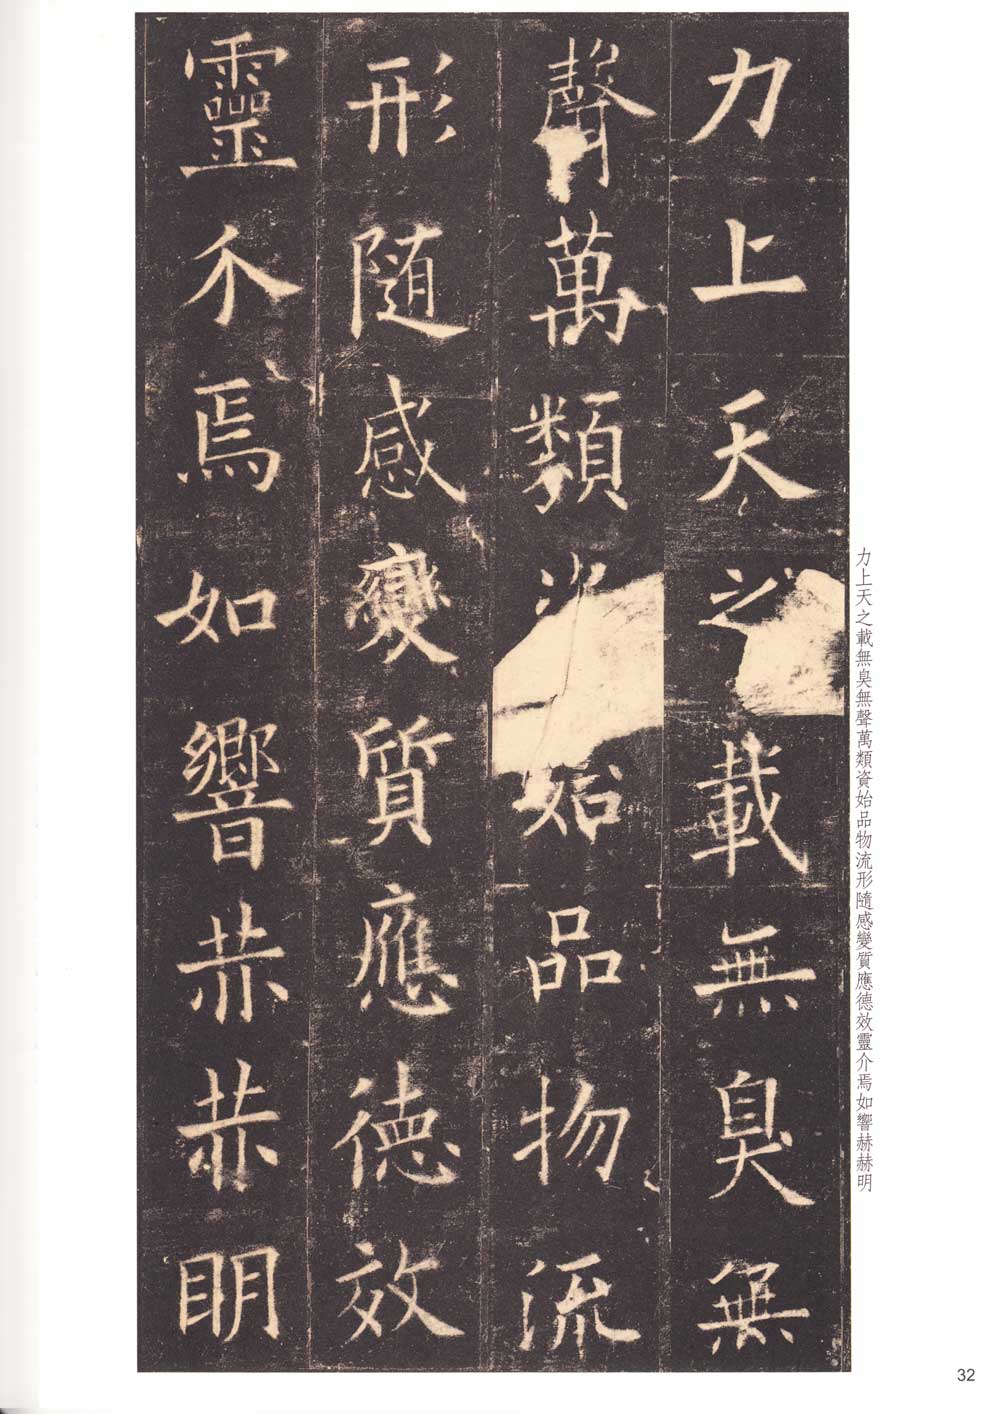 力上天之載無臭無
聲萬類資始品物流
形隨感變質應德效
靈介焉如響赫赫明
力上天之載無臭無聲萬類資始品物流形隨感變質應德效靈介焉如響赫赫明
32